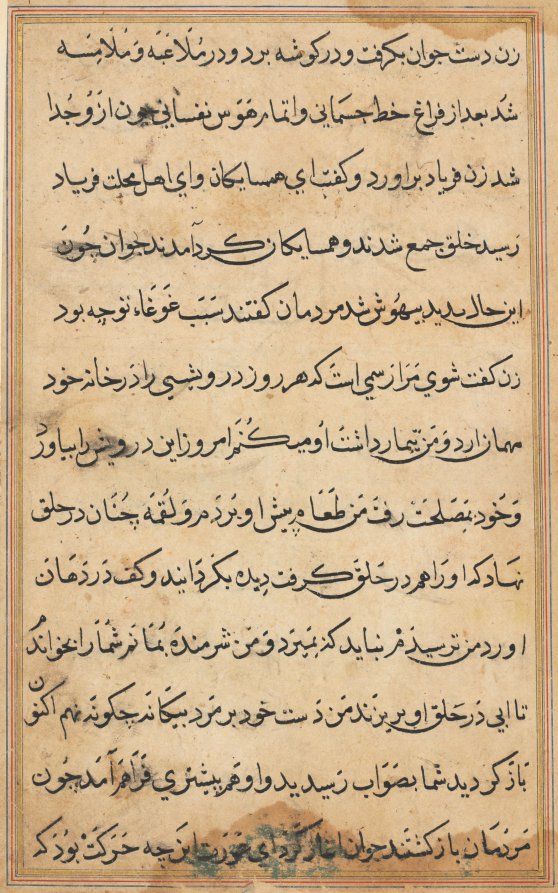 زن دست جوان بکرفت و در کوشه برد و در مُلاعَبَه وَ مُلامَسَه
شُد بعد از فراغ خط جسمانی و اتمام هَوَس نفسانی چون از وُ جُدا
شد زن فریاد براورد و کفت ای همسایکان وای اهل محلت فریاد
رَسید خلق جمع شدند و همسایکان کرد آمدند جوان چُون
این حال بدید بیهُوش شد مردمان کفتند سَبَب غَوغَاء تو چه بود
زن کفت شوی مَرا رَسمی است که هر روز درویشی را دَر خانه خود
مهمان ارد وَ مَن تیمار داشت اُو میکُنَم امروز این درویش را بیاورد
وَ خود بمَصلحَت رفت مَن طَعَام پیش او بُردَم وَ لُقمَه چُنان در حلق
نهاد که او را هم در حَلق کرفت دیده بکردَانید و کف دَر دَهَان
اورد من ترسیدَم نباید که بمیرَد وَ مَن شرمندَه بُمَانم شُمَا را بخواندُم
تا ابی دَر حَلق او بریزند مَن دَست خود بر مَرد بیکانَه چکونَه نهم اکنون
بَاز کردید شما بصَوَاب رَسیدید و او هم بیشتری فَرَاهَم آمَد چُون
مَردمَان باز کشتند جوان اغاز کرد ای عَورَت این چه حَرکَت بُود که